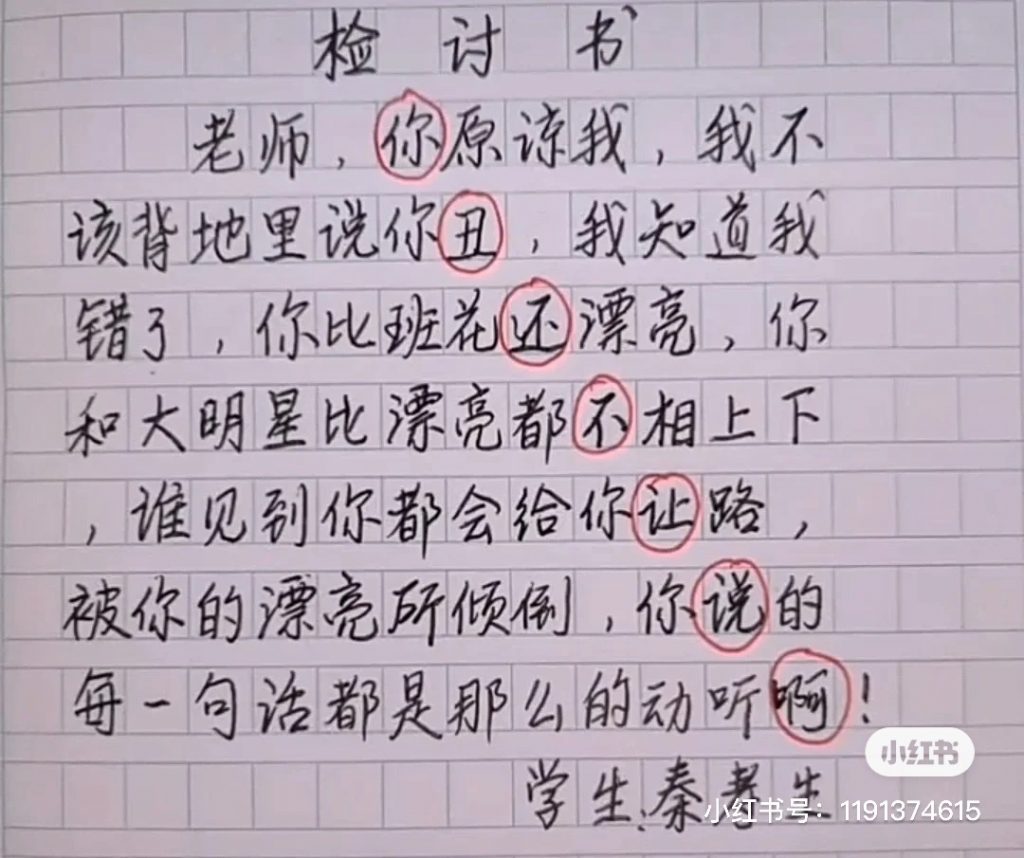 检讨书
老师，你原谅我，我不
该背地里说你丑，我知道我
错了，你比班花还漂亮，你
和大明星比漂亮都不相上下
，谁见到你都会给你让路，
被你的漂亮所倾倒，你说的
每一句话都是那么的动听啊！
小红书
学生：秦考生
小红书号：1191374615